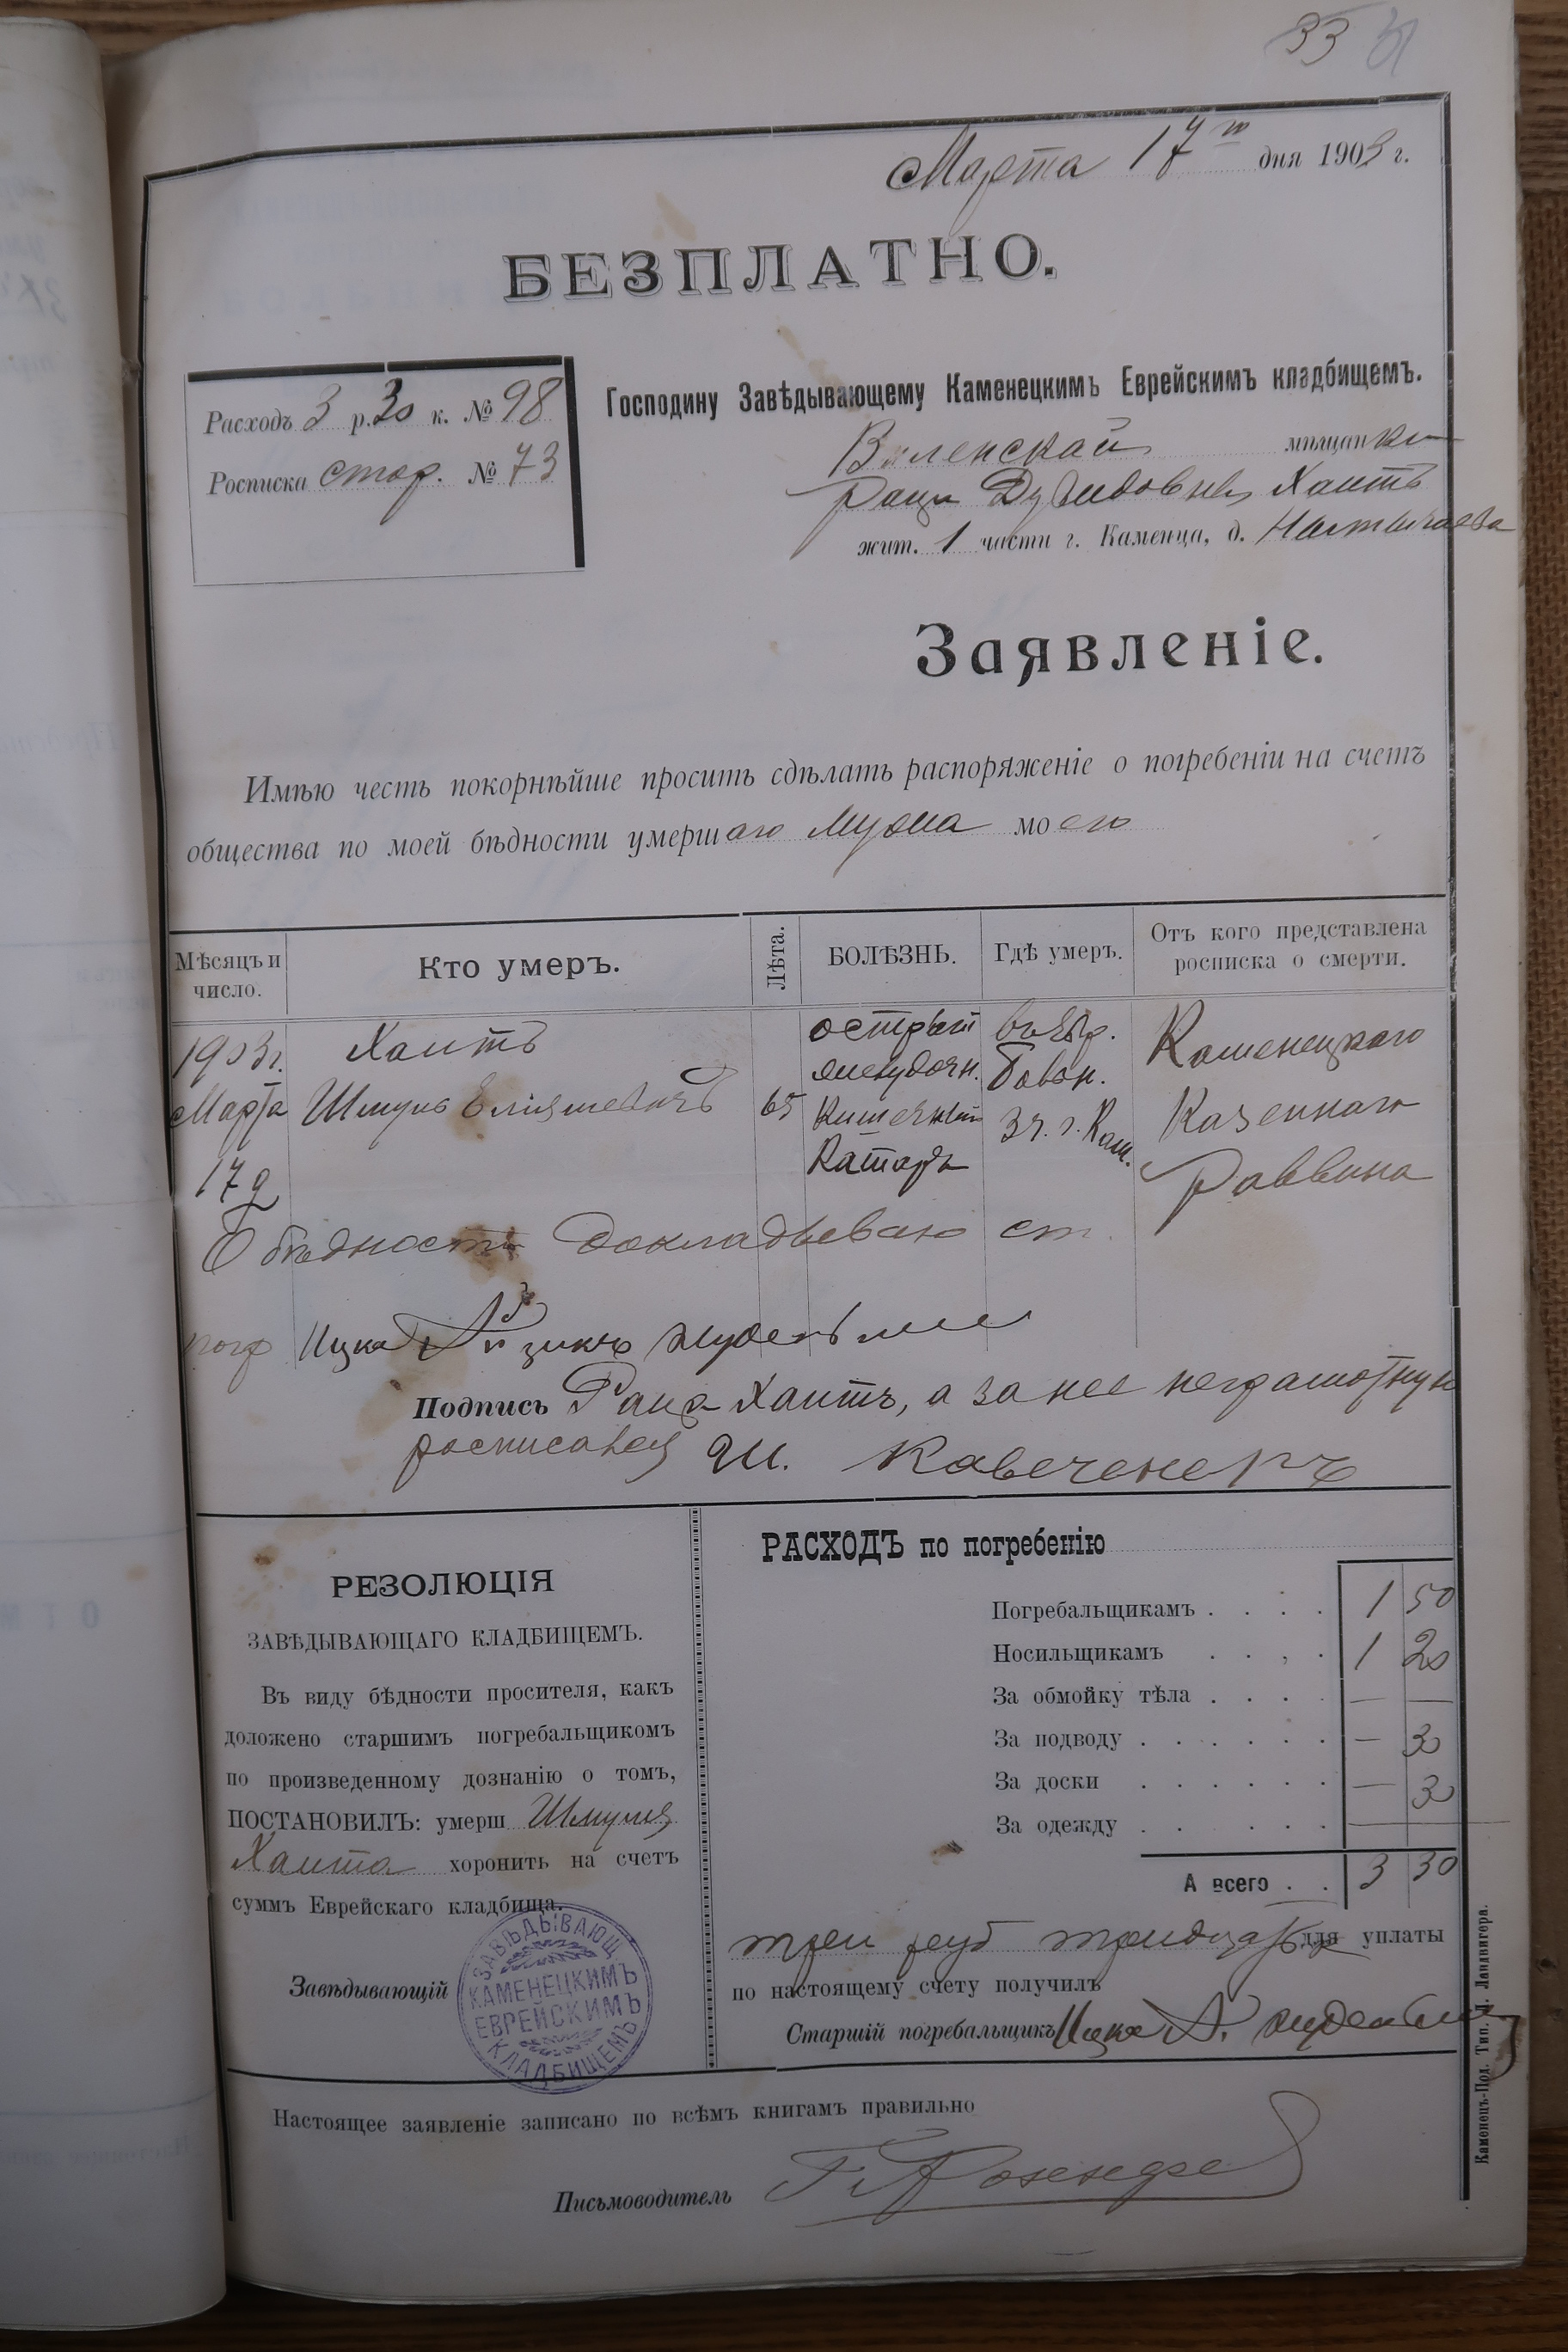 33
Марта 17 го дня 1903 г.
БЕЗПЛАТНО.
Расходъ 3 р. 30 к. № 98
Росписка стор. № 73
Господину Завѣдывающему Каменецкимъ Еврейскимъ кладбищемъ.
Виленской мѣщанки
Хаитъ
жит. 1 части г. Каменца, д.
Заявленіе.
Имѣю честь покорнѣйше просить сдѣлать распоряженіе о погребеніи на счетъ
общества по моей бѣдности умершаго мужа моего
Мѣсяцъ и число.
Кто умеръ.
Лѣта.
БОЛѢЗНЬ.
Гдѣ умеръ.
Отъ кого представлена росписка о смерти.
1903 г.
Марта
17 д
Хаитъ
Шмуль
65
острый
желудочн.
кишечный
катаръ
въ Евр.
3 ч. г. Кам.
Каменецкаго
Казеннаго
Раввина
О бѣдности докладываю ст.
погр Ицка
Подпись Раца Хаитъ, а за нее неграмотную
росписался Ш.
РЕЗОЛЮЦІЯ
ЗАВѢДЫВАЮЩАГО КЛАДБИЩЕМЪ.
Въ виду бѣдности просителя, какъ
доложено старшимъ погребальщикомъ
по произведенному дознанію о томъ,
ПОСТАНОВИЛЪ: умерш Шмуля
Хаита хоронить на счетъ
суммъ Еврейскаго кладбища.
Завѣдывающій
ЗАВѢДЫВАЮЩ
КАМЕНЕЦКИМЪ
ЕВРЕЙСКИМЪ
КЛАДБИЩЕМЪ
РАСХОДЪ по погребенію
Погребальщикамъ . . . . 1 50
Носильщикамъ . . . . 1 20
За обмойку тѣла . . . . — —
За подводу . . . . . . — 30
За доски . . . . . . — 30
За одежду . . . . . .
А всего . . 3 30
три руб тридцать для уплаты
по настоящему счету получилъ
Старшій погребальщикъ Ицка А.
Настоящее заявленіе записано по всѣмъ книгамъ правильно
Письмоводитель
Каменецъ-Под. Тип. Д. Ландвигера.